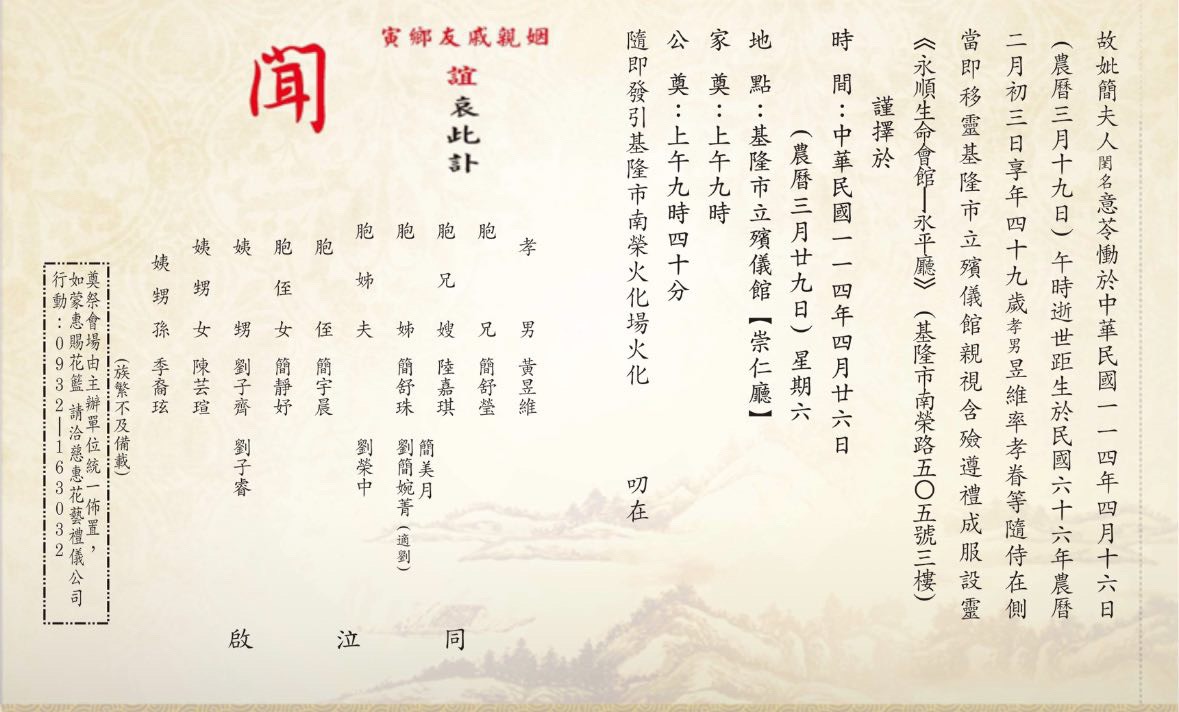 故妣簡夫人閨名意苓慟於中華民國一一四年四月十六日
(農曆三月十九日)午時逝世距生於民國六十六年農曆
二月初三日享年四十九歲孝男昱維率孝眷等隨侍在側
當即移靈基隆市立殯儀館親視含殮遵禮成服設靈
《永順生命會館—永平廳》(基隆市南榮路五〇五號三樓)
謹擇於
時 間：中華民國一一四年四月廿六日
(農曆三月廿九日)星期六
地 點：基隆市立殯儀館【崇仁廳】
家 奠：上午九時
公 奠：上午九時四十分
隨即發引基隆市南榮火化場火化 叨在
姻親戚友鄉寅
誼哀此訃
聞
孝男 黃昱維
胞兄 簡舒瑩
胞兄嫂 陸嘉琪 簡美月
胞姊 簡舒珠 劉簡婉菁(適劉)
胞姊夫 劉榮中
胞侄 簡宇晨
胞侄女 簡靜妤
姨甥 劉子齊 劉子睿
姨甥女 陳芸瑄
姨甥孫 季裔玹
同 泣 啟
(族繁不及備載)
奠祭會場由主辦單位統一佈置，
如蒙惠賜花籃 請洽慈惠花藝禮儀公司
行動：0932—163032